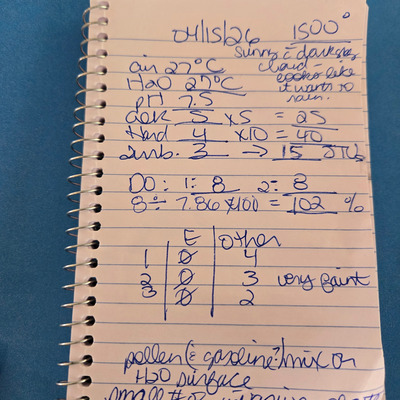 04/15/26 1500°
Sunny c̄ dark sky
cloud -
looks like
it wants to
rain.
air 27°C
H2O 27°C
pH 7.5
alk 5 x5 = 25
Hard 4 x10 = 40
Turb. 3 → 15 JTUs
DO: 1: 8 2: 8
8 ÷ 7.86 x100 = 102 %
E Other
1 0 4
2 0 3 very faint
3 0 2
pollen (& gasoline?) mix on
H2O surface